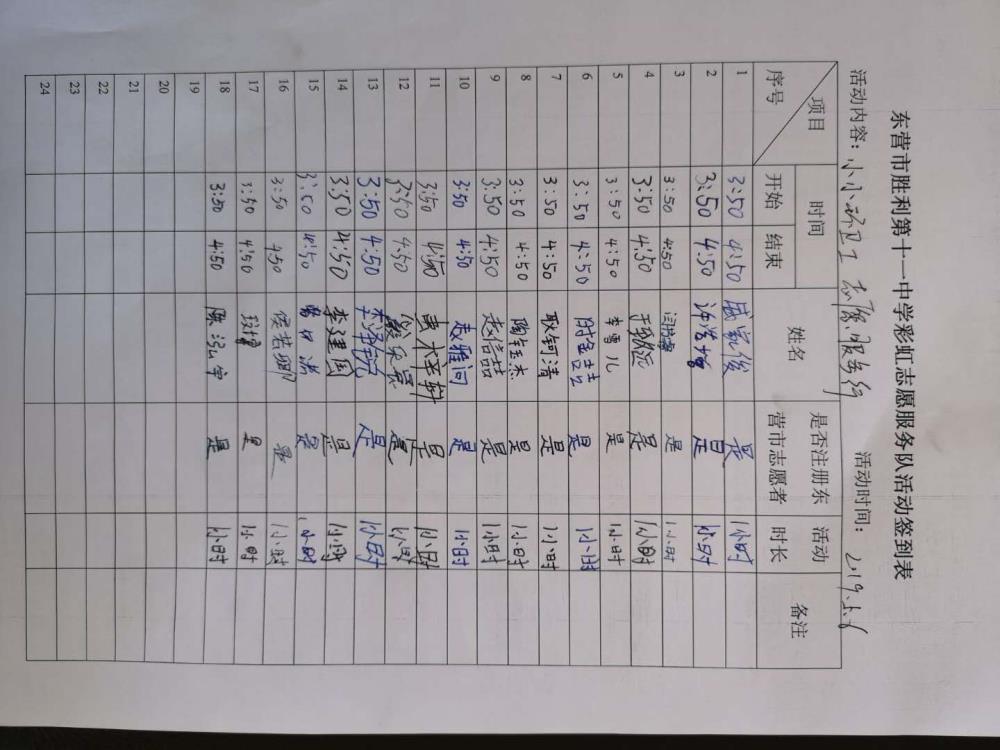 东营市胜利第十一中学彩虹志愿服务队活动签到表
活动内容：小小环卫工 志愿服务行 活动时间：2019.5.6
项目 时间 姓名 是否注册东 活动 备注
序号 开始 结束 营市志愿者 时长
1 3:50 4:50 是 1小时
2 3:50 4:50 是 1小时
3 3:50 4:50 是 1小时
4 3:50 4:50 是 1小时
5 3:50 4:50 李雪儿 是 1小时
6 3:50 4:50 是 1小时
7 3:50 4:50 耿钶清 是 1小时
8 3:50 4:50 陶钰杰 是 1小时
9 3:50 4:50 赵信喆 是 1小时
10 3:50 4:50 赵雅问 是 1小时
11 3:50 4:50 是 1小时
12 3:50 4:50 是 1小时
13 3:50 4:50 是 1小时
14 3:50 4:50 李建国 是 1小时
15 3:50 4:50 是 1小时
16 3:50 4:50 是 1小时
17 3:50 4:50 是 1小时
18 3:50 4:50 陈泓宇 是 1小时
19
20
21
22
23
24